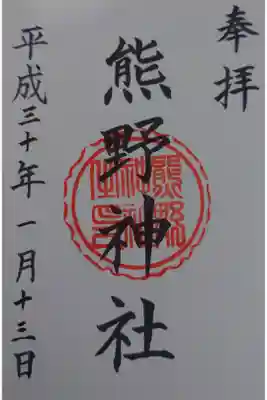 奉拝
熊野神社
平成三十年一月十三日